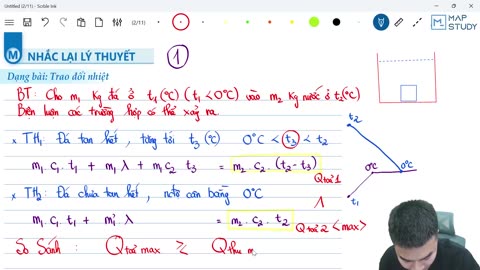 Untitled (2/11) - Scrble Ink
(2/11)
MAP
STUDY
M NHẮC LẠI LÝ THUYẾT
1
Dạng bài: Trao đổi nhiệt
BT: Cho m₁ kg đá ở t₁ (°C) (t₁ < 0°C) vào m₂ kg nước ở t₂(°C)
Biện luận các trường hợp có thể xảy ra.
x TH₁: Đá tan hết, tăng tới t₃ (°C) 0°C < t₃ < t₂
m₁ c₁ t₁ + m₁ λ + m₁ c₂ t₃ = m₂ . c₂ . (t₂ - t₃)
Q toả 1
x TH₂: Đá chưa tan hết, nđộ cân bằng 0°C
m₁ . c₁ . t₁ + m₁' . λ = m₂ . c₂ . t₂
Q toả 2 <max>
So Sánh: Q toả max ≥ Q thu m
t₂
0°C
0°C
t₁
λ